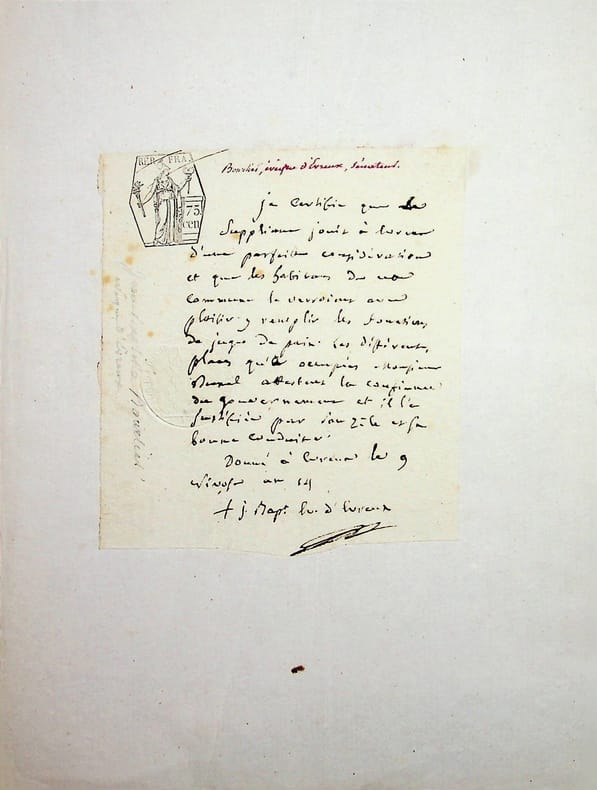 REP. FRA.
75
cen
Bourlier, évêque d'Evreux, sénateur.
je certifie que le
Suppliant jouit à Evreux
d'une parfaite considération
et que les habitans de cette
commune le verroient avec
plaisir y remplir les fonctions
de juge de paix. Les différentes
places qu'a occupées Monsieur
attestent la confiance
du gouvernement et il l'a
justifiée par son zèle et sa
bonne conduite.
Donné à Evreux le 9
nivose an 14
+ j. Bapt. Ev. d'Evreux
Jean Baptiste Bourlier,
évêque d'Evreux